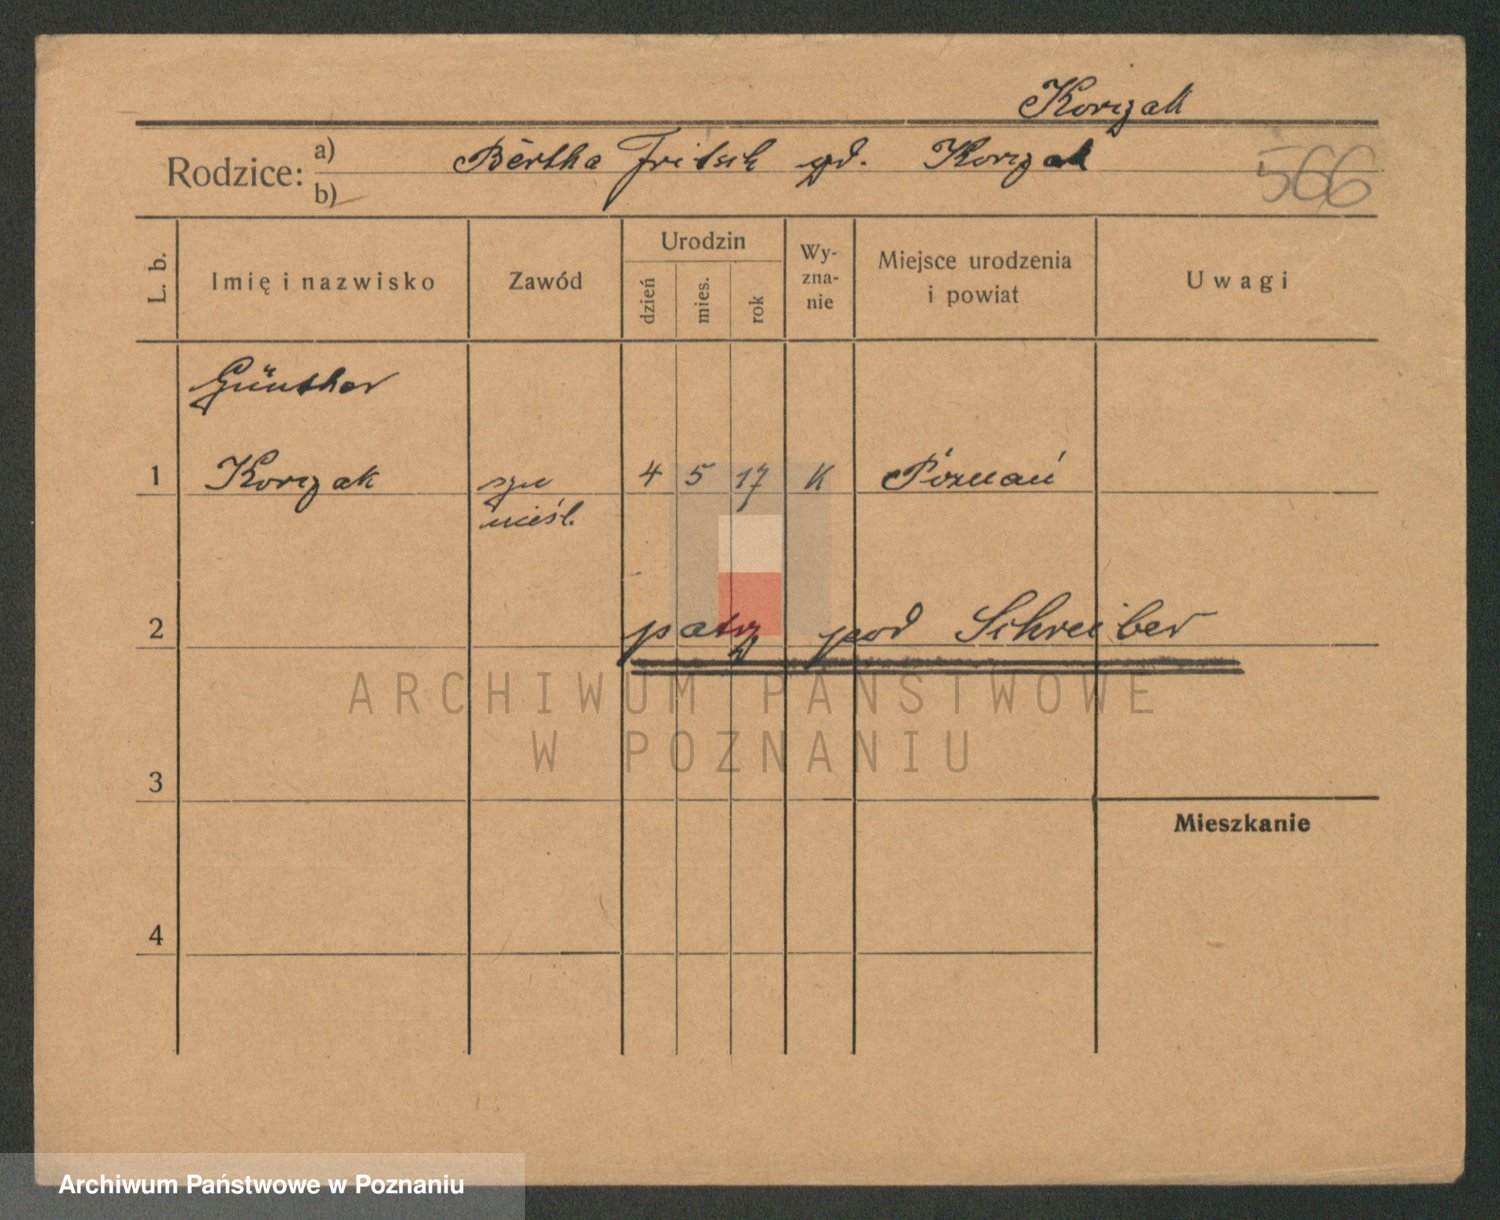 Korczak
Rodzice: a) Bertha Fritsch gd. Korczak
b)
566
L. b.
Imię i nazwisko
Zawód
Urodzin
dzień
mies.
rok
Wy-
zna-
nie
Miejsce urodzenia
i powiat
Uwagi
Günther
1 Korczak 4 5 17 K Poznań
nieśl.
2 patrz pod Schreiber
ARCHIWUM PAŃSTWOWE
W POZNANIU
3
Mieszkanie
4
Archiwum Państwowe w Poznaniu